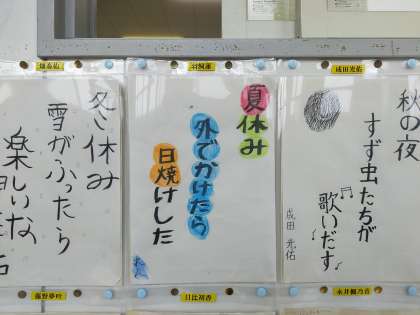 成田光佑
秋の夜
すず虫たちが
歌いだす
成田 光佑
夏休み
外でかけたら
日焼けした
冬休み
雪がふったら
楽しいな
日比初香